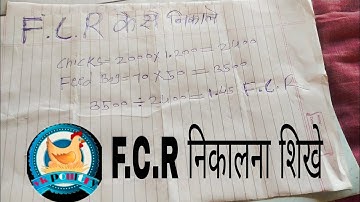 F.C.R कैसे निकाले
Chicks = 2000 x 1.200 = 2400
Feed Bag = 70 x 50 = 3500
3500 ÷ 2400 = 1.45 F.C.R
F.C.R निकालना शिखे
POULTRY